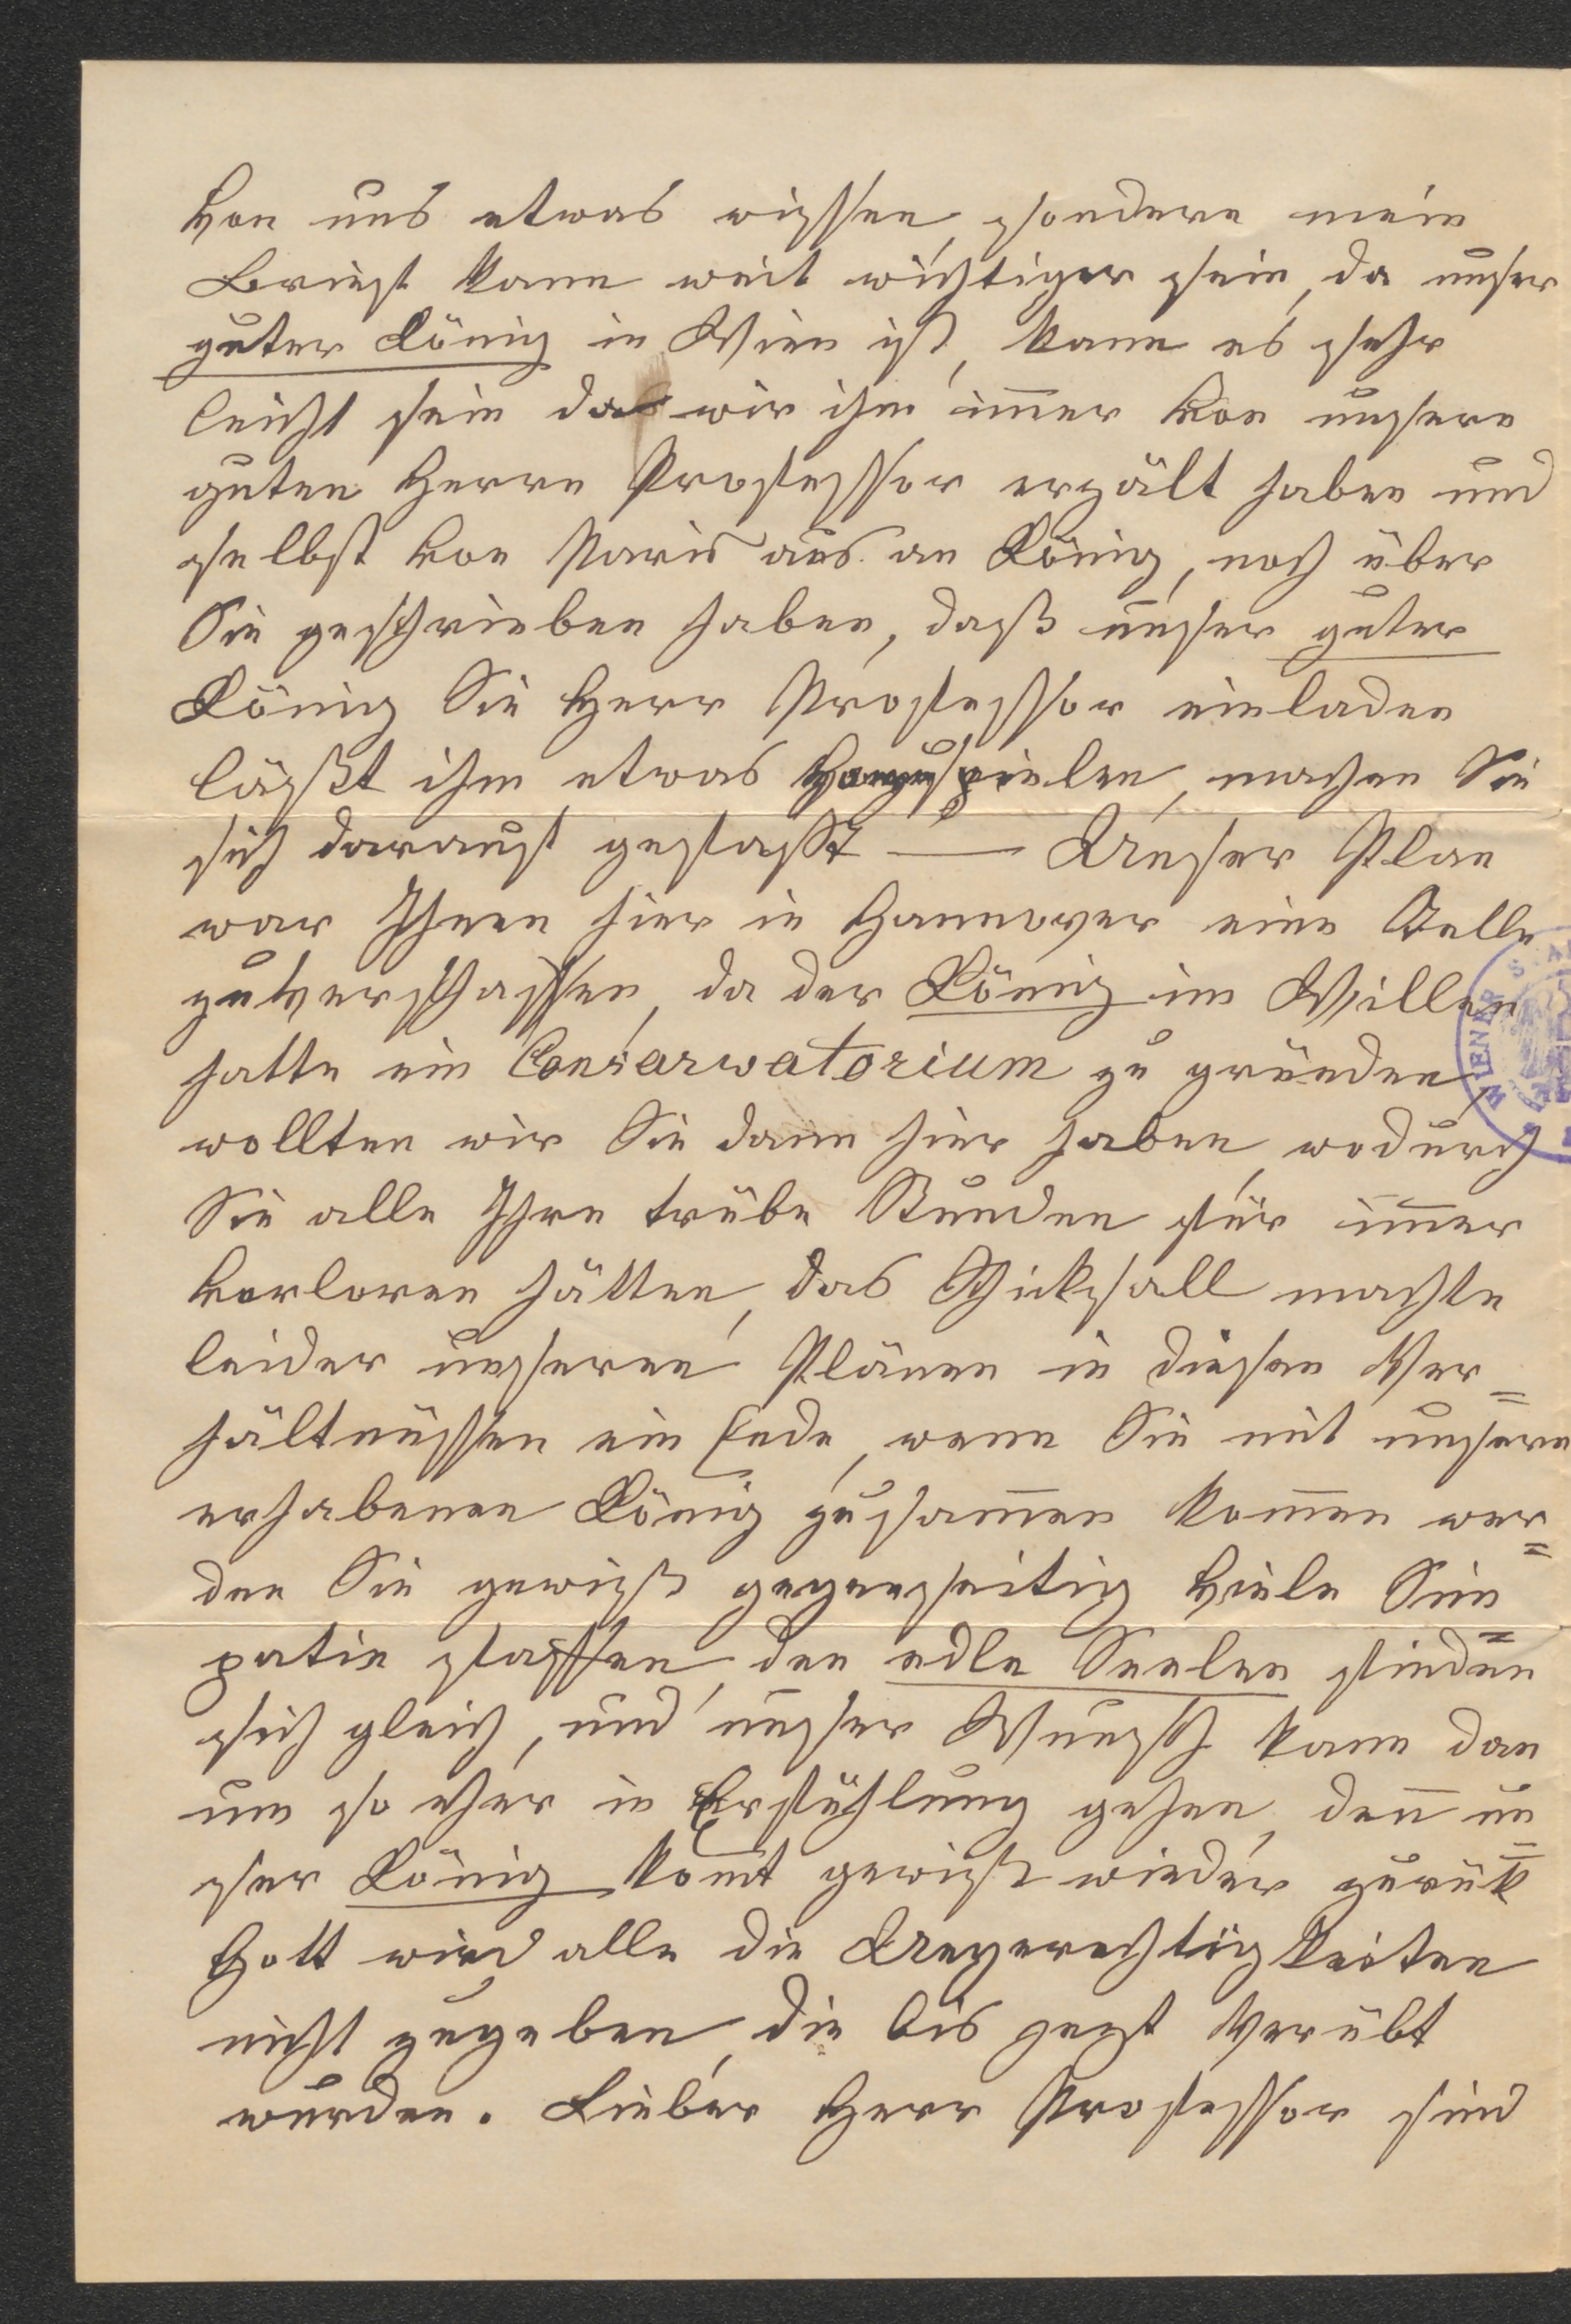 von uns etwas wissen, sondern mein
Brief kann weit wichtiger sein, da unser
guter König in Wien ist, kann es sehr
leicht sein das wir ihm im̅er von unsern
guten Herrn Professor erzält haben und
selbst von Paris aus an König, noch über
Sie geschrieben haben, daß unser guter
König Sie Herr Professor einladen
läßt ihm etwas vorzuspielen, machen Sie
sich darauf gefasst — Unser Plan
war Ihnen hier in Hannover eine Stelle
zu verschaffen, da der König im Willen
hatte ein Consarwatorium zu gründen
wollten wir Sie dann hier haben, wodurch
Sie alle Ihre trübe Stunden für im̅er
verloren hätten, das Schicksall machte
leider unseren Plänen in diesen Ver=
hältnüssen ein Ende, wenn Sie mit unsern
erhabenen König zusam̅en kom̅en wer=
den Sie gewiß gegenseitig viele Sim=
patie fassen, den edle Seelen finden
sich gleich, und unser Wunsch kann dan
um so eher in Erfühlung gehen, den̅ un=
ser König kom̅t gewiß wieder zurük
Gott wird alle die Ungerechtigkeiten
nicht zugeben, die bis jezt verübt
wurden. Lieber Herr Professor sind
WIENER